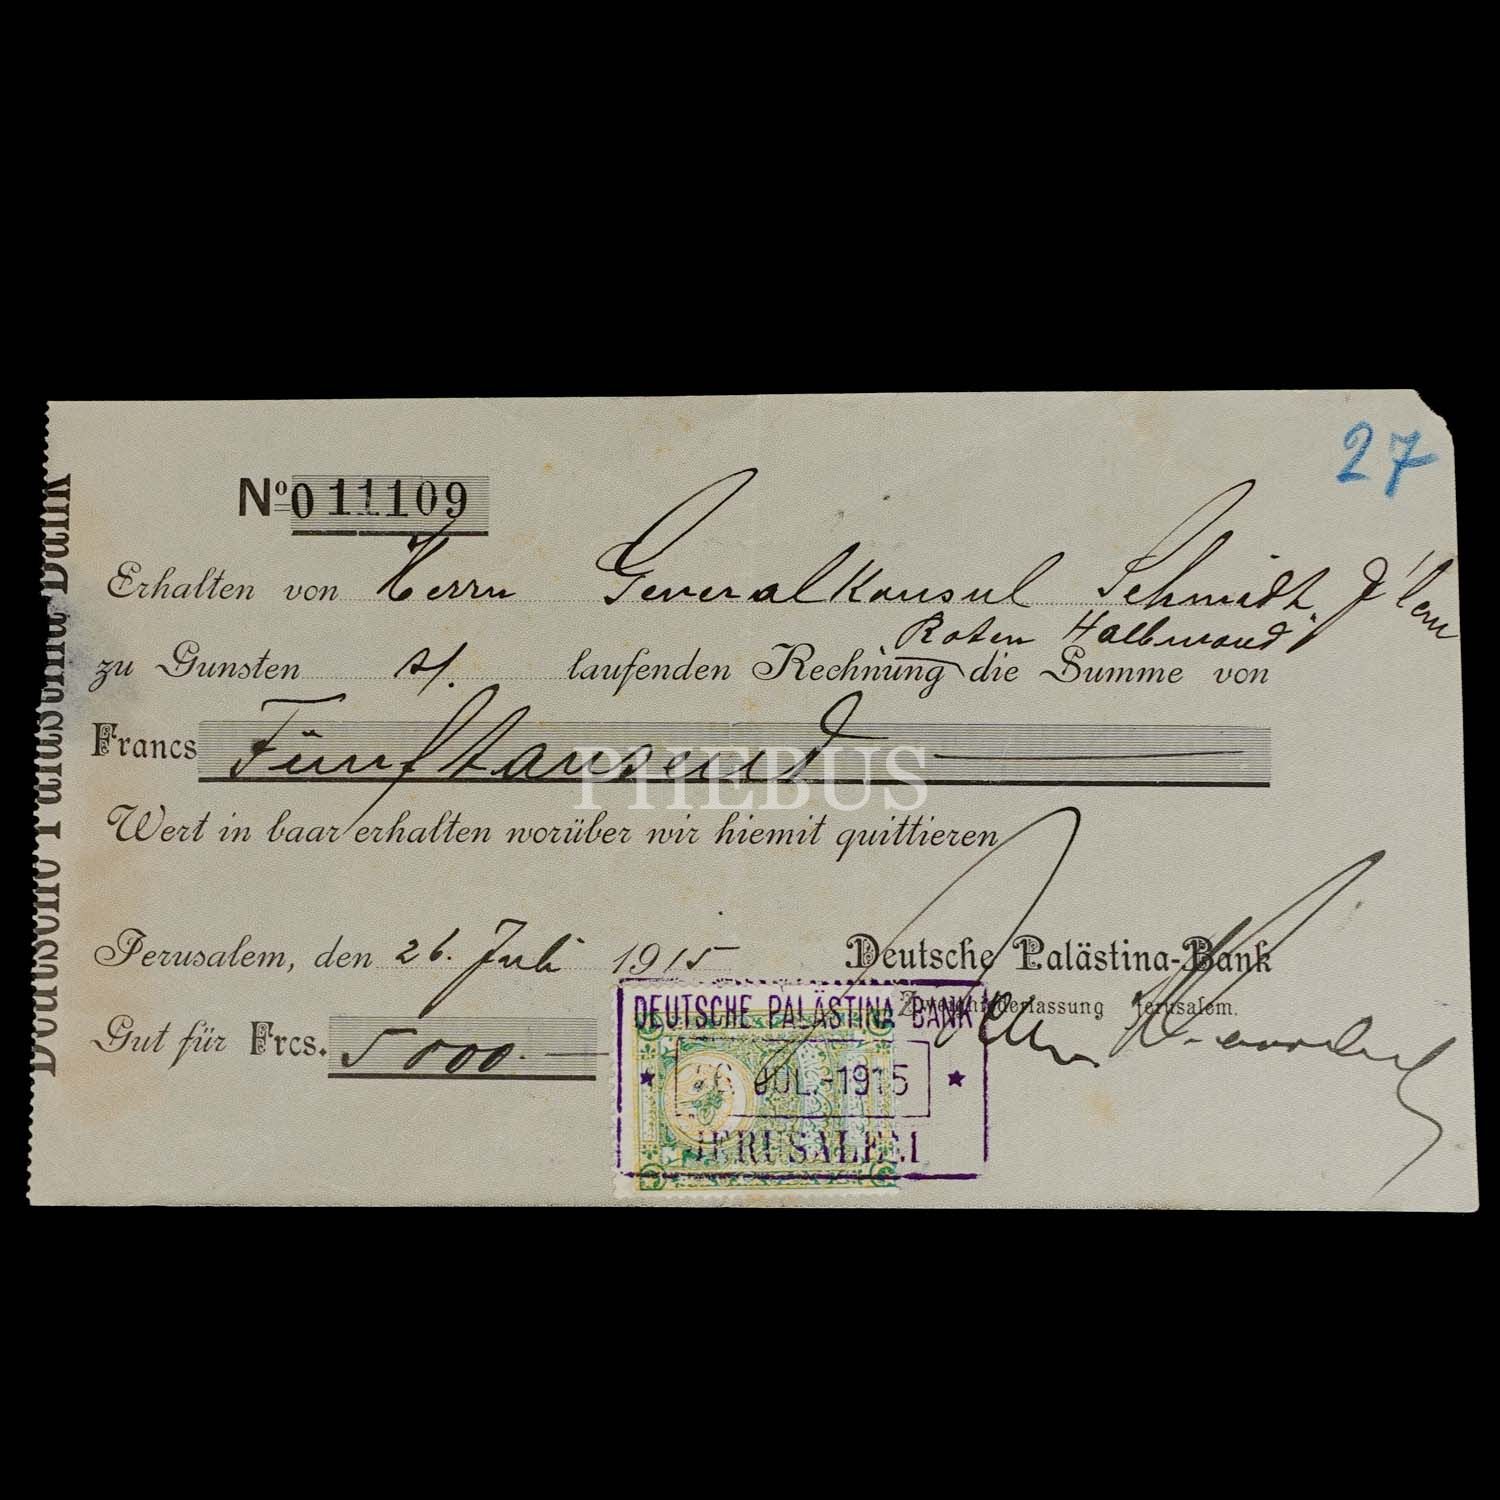 27
Nº 011109
Erhalten von Herrn Generalkonsul Schmidt, J'lem
Roten Halbmond
zu Gunsten s/. laufenden Rechnung die Summe von
Francs Fünftausend
PHEBUS
Wert in baar erhalten worüber wir hiemit quittieren
Jerusalem, den 26. Juli 1915
Deutsche Palästina-Bank
Zweigniederlassung Jerusalem.
Gut für Frcs. 5000.
DEUTSCHE PALÄSTINA BANK
★ 26. JUL. 1915 ★
JERUSALEM
Deutsche Palästina Bank